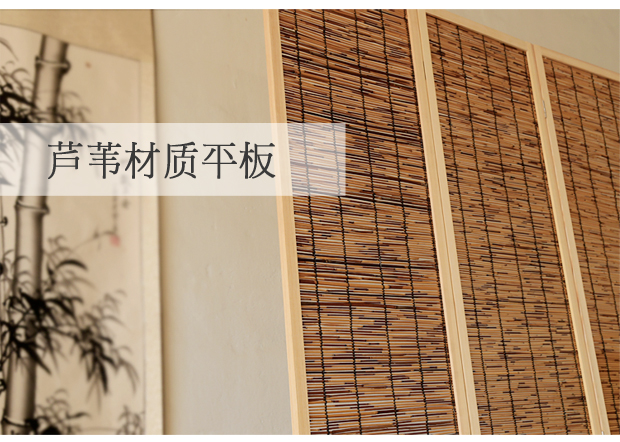 芦苇材质平板